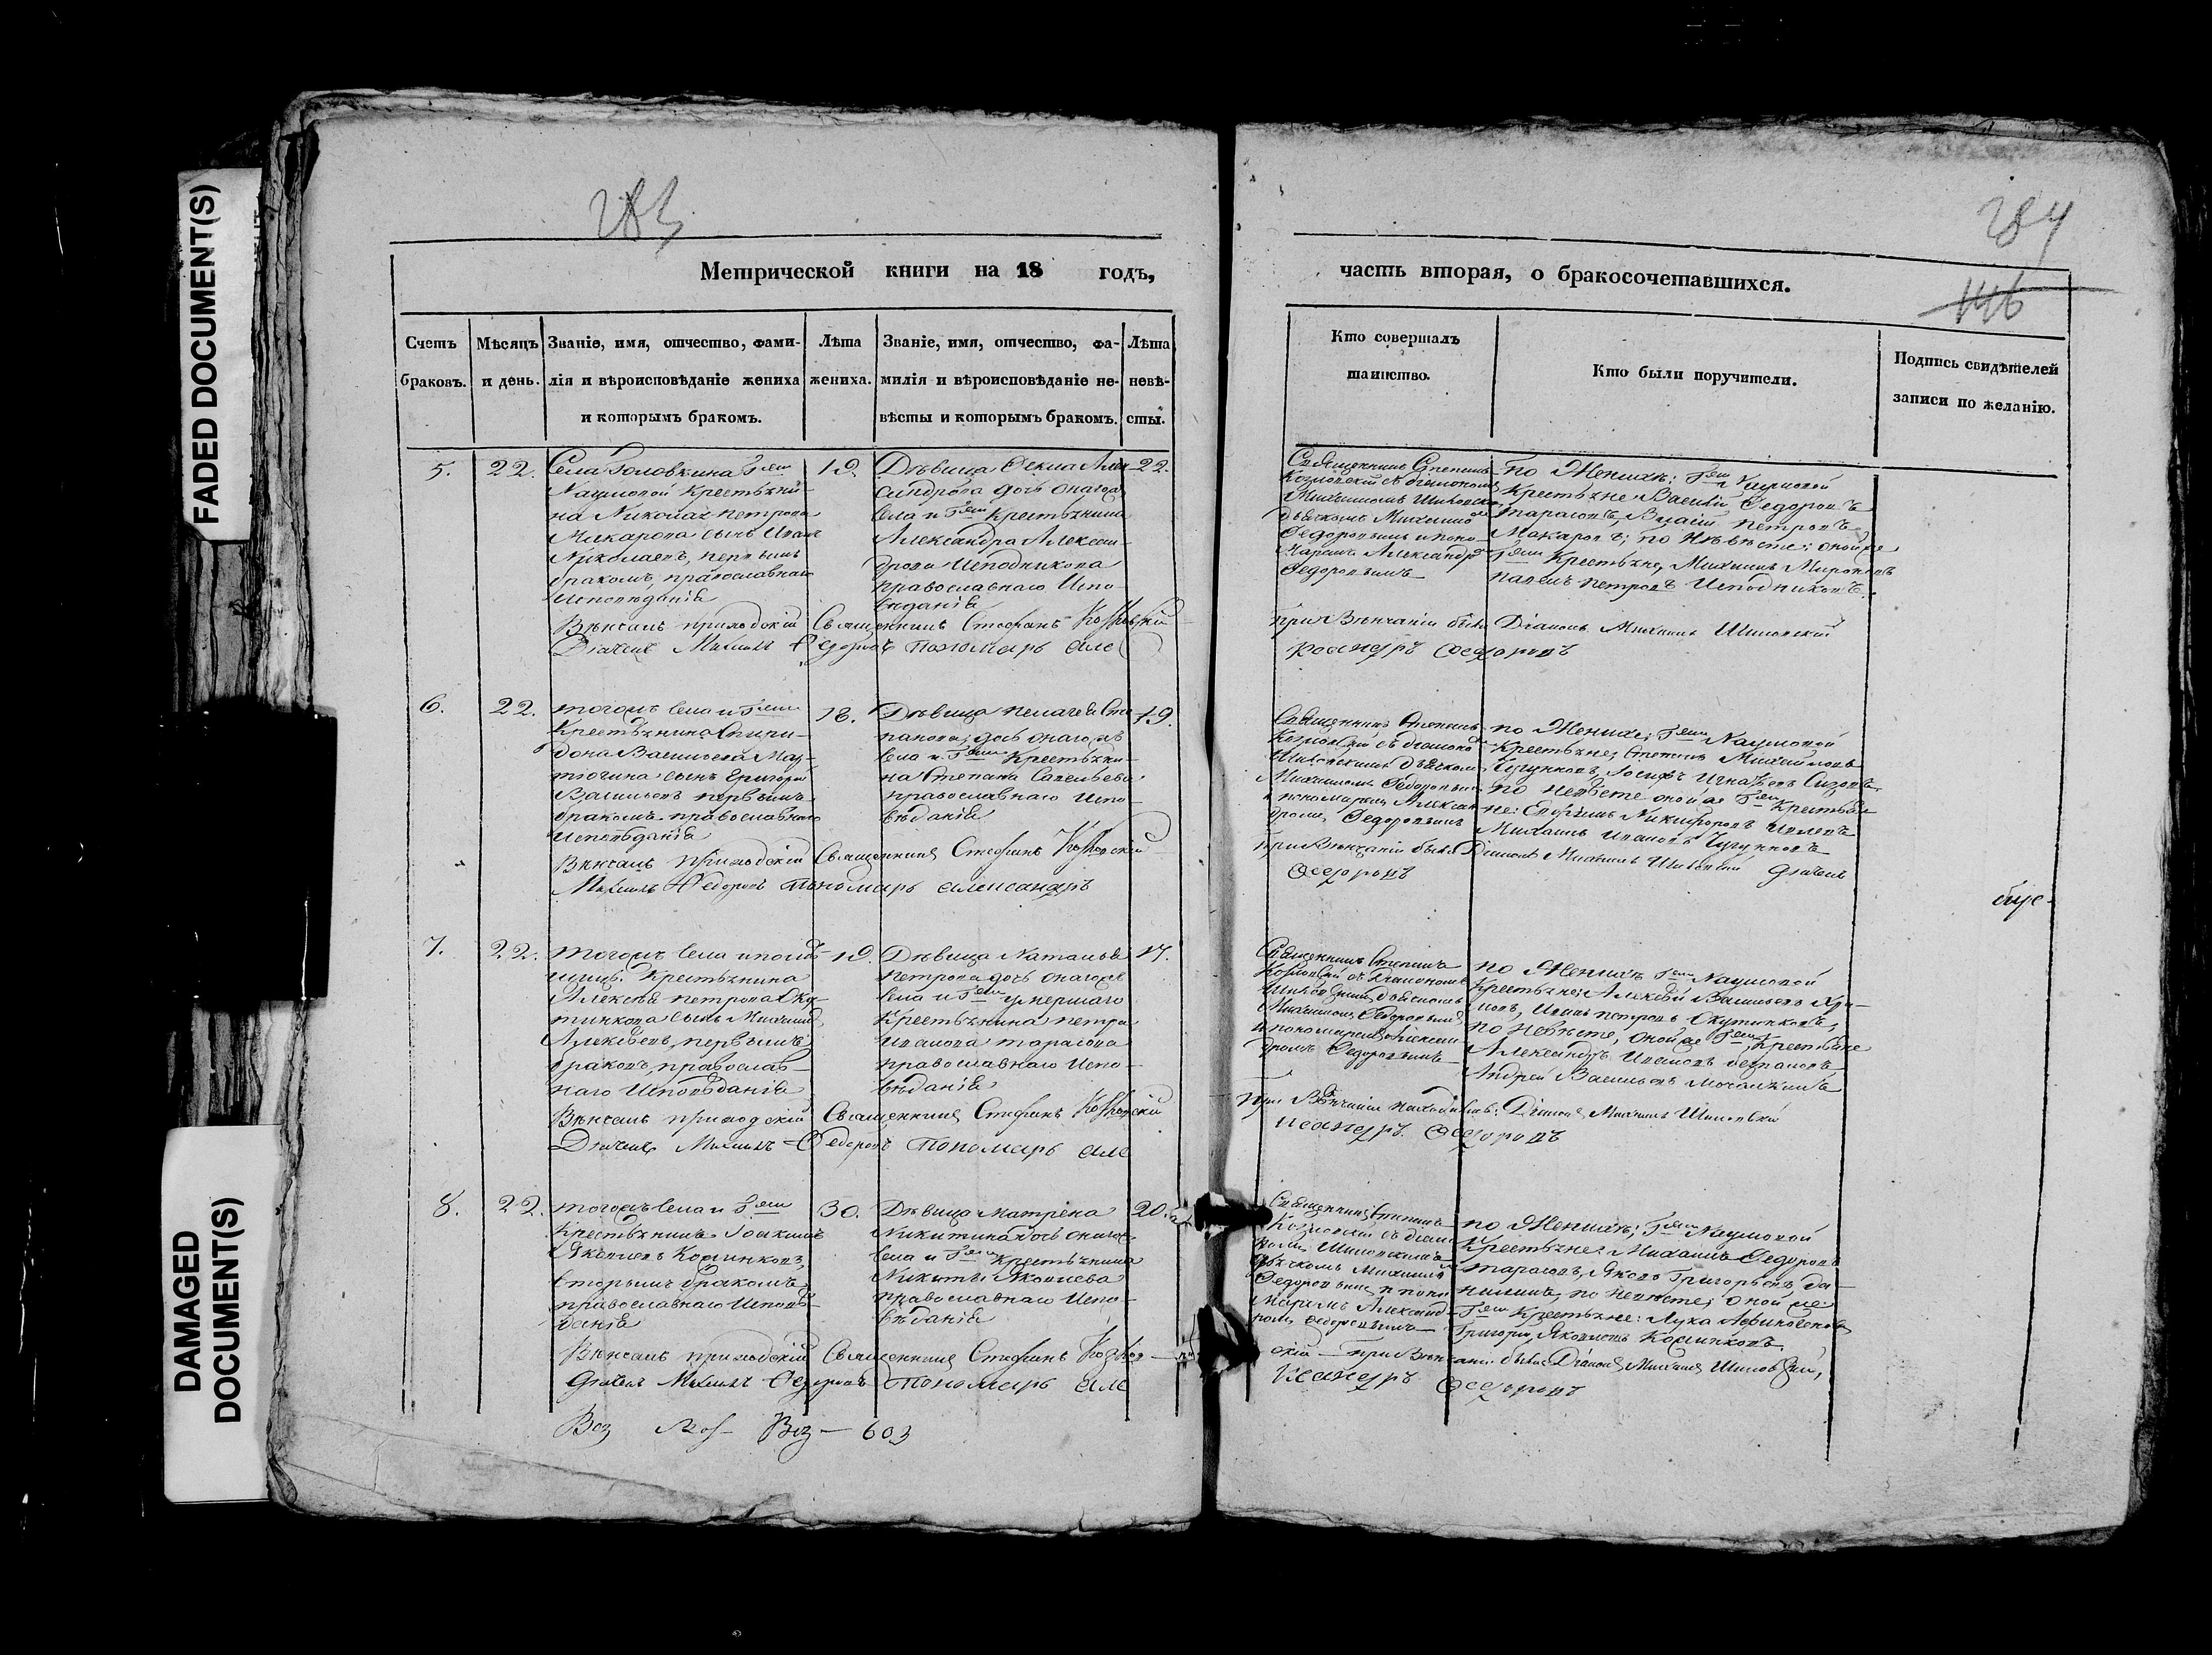 FADED DOCUMENT(S)
DAMAGED
DOCUMENT(S)
283
Метрической книги на 18 годъ,
Счетъ
браковъ.
Мѣсяцъ
и день.
Званіе, имя, отчество, фами-
лія и вѣроисповѣданіе жениха
и которымъ бракомъ.
Лѣта
жениха.
Званіе, имя, отчество, фа-
милія и вѣроисповѣданіе не-
вѣсты и которымъ бракомъ.
Лѣта
невѣ-
сты.
5.
22.
Села Головкина Г-жи
Наумовой крестьяни-
на Николая Петрова
Макарова сынъ Иванъ
Николаевъ, первымъ
бракомъ, православнаго
Исповѣданія
19
Дѣвица Фекла Але-
сандрова дочь онагожъ
села и Г-жи крестьянина
Александра Алексан-
дрова Исподникова
православнаго Испо-
вѣданія
22.
Вѣнчалъ приходскій Священникъ Стефанъ Козловскій
Дьячекъ Михаилъ Федоровъ пономарь Але
6.
22.
Тогожъ села и Г-жи
крестьянина Спири-
дона Васильева Мат-
югина сынъ Григорій
Васильевъ первымъ
бракомъ православнаго
Исповѣданія
18.
Дѣвица Пелагея Сте
панова, дочь онагожъ
села и Г-жи крестьяни-
на Степана Савельева
православнаго Испо-
вѣданія
19.
Вѣнчалъ Приходскій Священникъ Стефанъ Козловскій
Михаилъ Федоровъ пономарь Александръ
7.
22.
Тогожъ села и помѣ-
щицы крестьянина
Алексѣя Петрова Оку-
тинкова сынъ Михаилъ
Алексѣевъ, первымъ
бракомъ, православ-
наго Исповѣданія
19.
Дѣвица Наталья
Петрова дочь онагожъ
села и Г-жи умершаго
крестьянина Петра
Иванова Тарасова
православнаго Испо-
вѣданія
17.
Вѣнчалъ приходскій Священникъ Стефанъ Козловскій
Дьячекъ Михаилъ Федоровъ Пономарь Але
8.
22.
Тогожъ села и Г-жи
крестьянинъ Іоакимъ
Яковлевъ Кашинковъ,
вторымъ бракомъ,
православнаго Исповѣ-
данія
30.
Дѣвица Матрена
Никитина дочь онагожъ
села и Г-жи крестьянина
Никиты Яковлева
православнаго Испо-
вѣданія
20.
Вѣнчалъ приходскій Священникъ Стефанъ Козлов-
Дьячекъ Михаилъ Федоровъ Пономарь Але
603
284
146
часть вторая, о бракосочетавшихся.
Кто совершалъ
таинство.
Кто были поручители.
Подпись свидѣтелей
записи по желанію.
Священникъ Степанъ
Козловскій съ діакономъ
Михаиломъ Шиловскимъ
дьячкомъ Михаиломъ
Федоровымъ и поно-
маремъ Александромъ
Федоровымъ
По Женихѣ: Г-жи Наумовой
Крестьяне Василій Федоровъ
Тарасовъ, Петровъ
Макаровъ; по Невѣсте: оной же
Г-жи Крестьяне, Михаилъ Мироновъ
Павелъ Петровъ Исподниковъ.
при Вѣнчаніи были Діаконъ Михаилъ Шиловскій
ксандръ Федоровъ
Священникъ Степанъ
Козловскій съ діакономъ
Шиловскимъ дьячкомъ
Михаиломъ Федоровымъ
и пономаремъ Алексан
дромъ Федоровымъ
по Женихѣ; Г-жи Наумовой
Крестьяне; Степанъ Михайловъ
Чугунковъ, Іосифъ Игнатьевъ Сизовъ
по невѣсте оной же Г-жи крестья-
не: Ефремъ Никифоровъ
Михаилъ Ивановъ Чугунковъ
при Вѣнчаніи были Діаконъ Михаилъ Шиловскій дьячекъ
Федоровъ
Священникъ Степанъ
Козловскій съ Діакономъ
Шиловскимъ, дьячкомъ
Михаиломъ Федоровымъ
и пономаремъ Алексан
дромъ Федоровымъ
по Женихѣ Г-жи Наумовой
крестьяне; Алексѣй Васильевъ
Иванъ Петровъ Окутинковъ,
по невѣсте, оной же Г-жи крестьяне
Александръ Ивановъ
Андрей Васильевъ
При Вѣнчаніи находились: Діаконъ Михаилъ Шиловскій
ксандръ Федоровъ
Священникъ Степанъ
Козловскій съ діако
номъ Шиловскимъ
дьячкомъ Михаиломъ
Федоровымъ и поно
маремъ Александ-
ромъ Федоровымъ
по Женихѣ; Г-жи Наумовой
Крестьяне: Михаилъ Федоровъ
Тарасовъ, Яковъ Григорьевъ Да-
ниловъ, по Невѣсте; оной же
Г-жи крестьяне: Лука
Григорій Яковлевъ Кашинковъ.
скій — при Вѣнчаніи были Діаконъ Михаилъ Шиловскій,
ксандръ Федоровъ